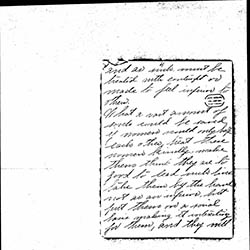 and as such must be
treated with contempt or
made to feel inferior to
them.
What a vast amount of
souls could be saved
if women would only help
each other, treat these
women kindly make
them think they are to
good to lead such lives
take them by the hand
not as an inferior, but
put them on a social
plane making it interesting
for them, and they will